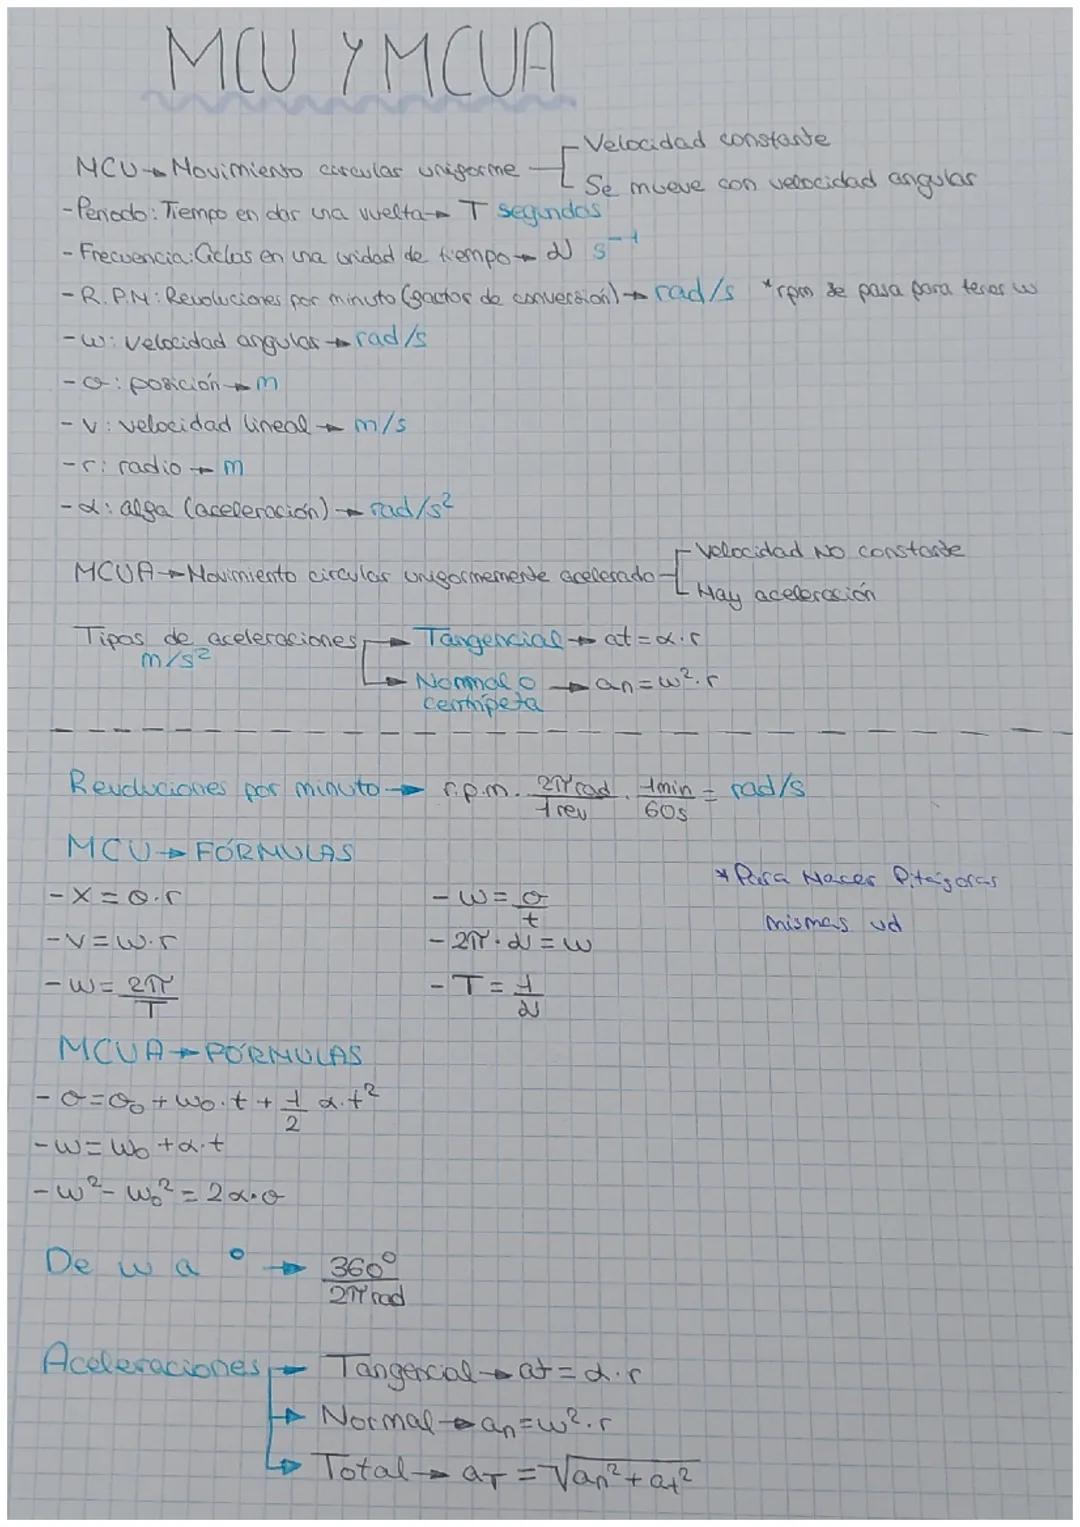 MCU Y MCUA
MCU → Movimiento circular uniforme
Velocidad constante
Se mueve con velocidad angular
- Periodo: Tiempo en dar una vuelta → T segundos
- Frecuencia: Ciclos en una unidad de tiempo → ν s⁻¹
- R.P.M: Revoluciones por minuto (factor de conversión) → rad/s *rpm se pasa para tener w
- w: velocidad angular → rad/s
- σ: posición → m
- v: velocidad lineal → m/s
- r: radio → m
- α: alfa (aceleración) → rad/s²
MCUA → Movimiento circular uniformemente acelerado
Velocidad NO constante
Hay aceleración
Tipos de aceleraciones
m/s²
Tangencial → at = α·r
Normal o → an = w²·r
centrípeta
Revoluciones por minuto → r.p.m. · 2π rad/1 rev · 1min/60s = rad/s
MCU → FÓRMULAS
- X = σ·r
- w = σ/t
* Para Hacer Pitágoras
mismas ud
- v = w·r
- 2π·ν = w
- w = 2π/T
- T = 1/ν
MCUA → FÓRMULAS
- σ = σ₀ + w₀·t + 1/2 α·t²
- w = w₀ + α·t
- w² - w₀² = 2α·σ
De w a ° → 360°/2π rad
Aceleraciones → Tangencial → at = α·r
→ Normal → an = w²·r
→ Total → aT = √an² + at²